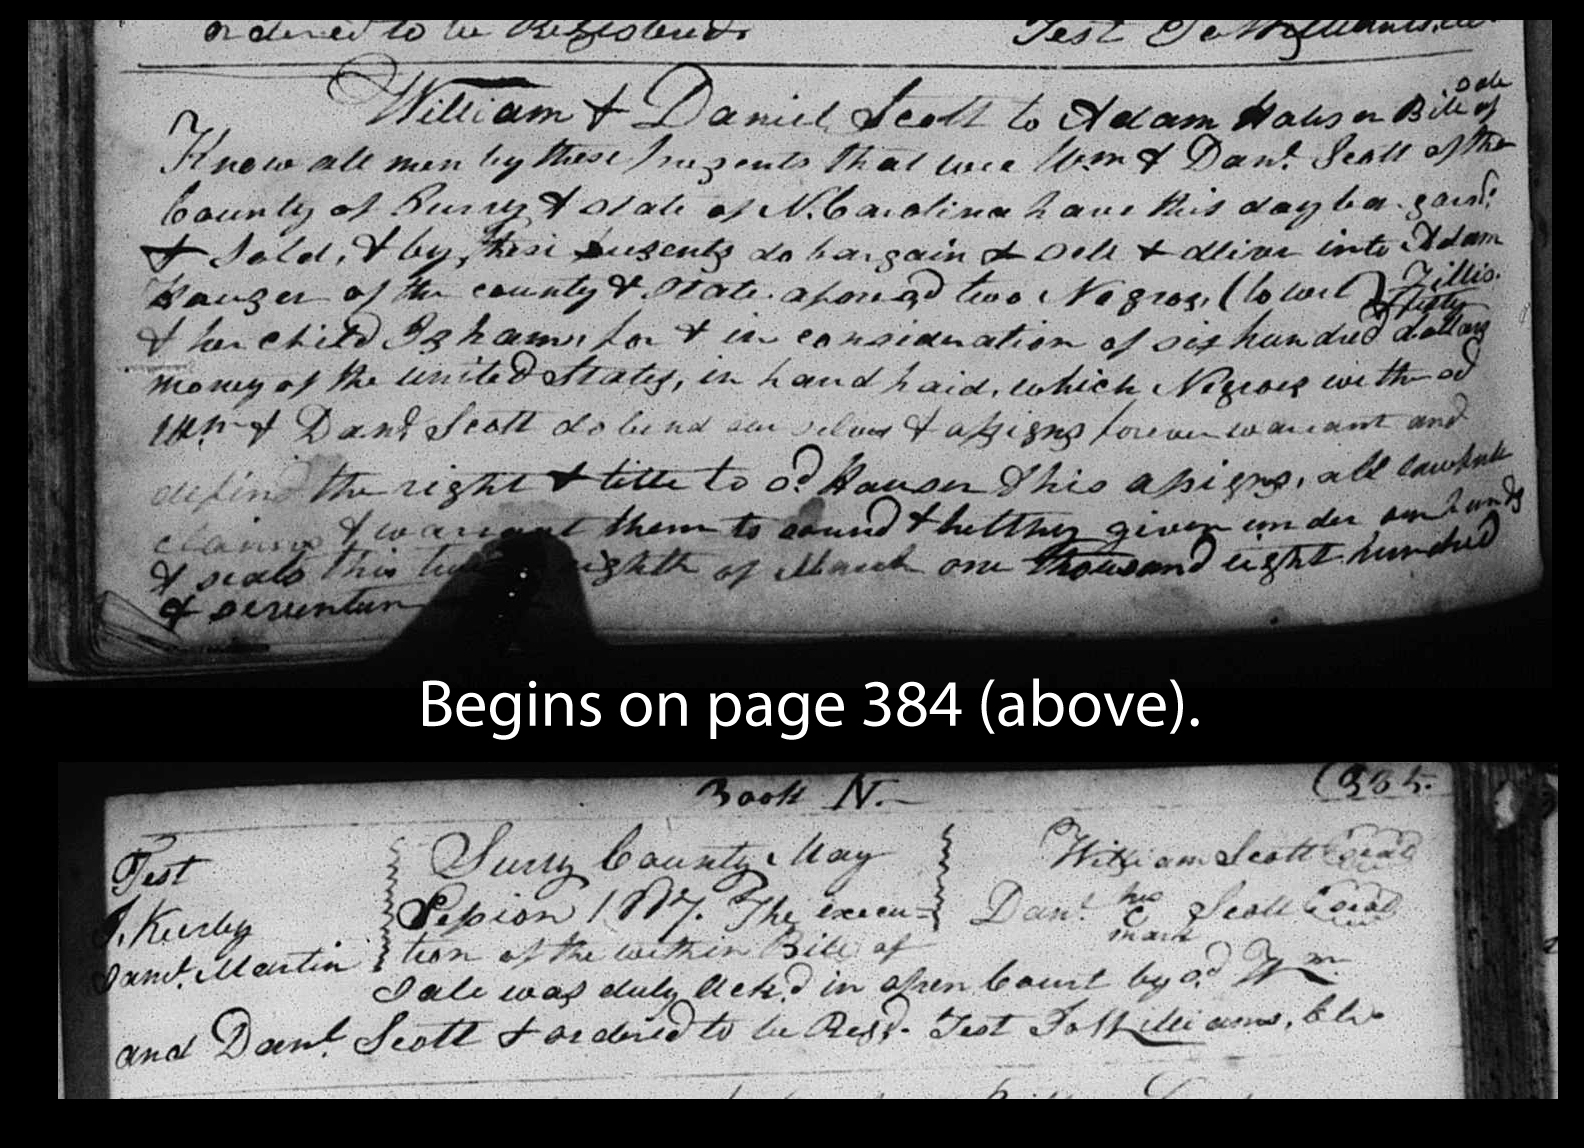 ordered to be Registered. Test Jo Williams, Clk
William & Daniel Scott to Adam Hauser Bill of Sale
Know all men by these presents that wee Wm & Danl. Scott of the
County of Surry & State of N. Carolina have this day bargaind.
& Sold, & by these presents do bargain & Sell & dliver into Adam
Hauzer of the county & State aforesd two Negros, (to wit)
& her child Isham, for & in consideration of six hundred dollars
money of the united States, in hand paid, which Negroes we the sd
Wm & Danl Scott do bind our selves & assigns forever warrant and
defend the right & title to sd Hauser & his assigns, all lawfull
claims & warrant them to sound & helthy given under our hands
& seals this eighth of March one thousand eight hundred
& seventeen
Begins on page 384 (above).
Book N. (385.
Test Surry County May William Scott (seal)
Session 1817. The execu- Danl. his C mark Scott (seal)
J. Kerby
tion of the within Bill of
Saml. Martin
Sale was duly Ackd in open Court by sd Wm
and Danl. Scott & ordered to be Regd. Test Jo Williams, Clk